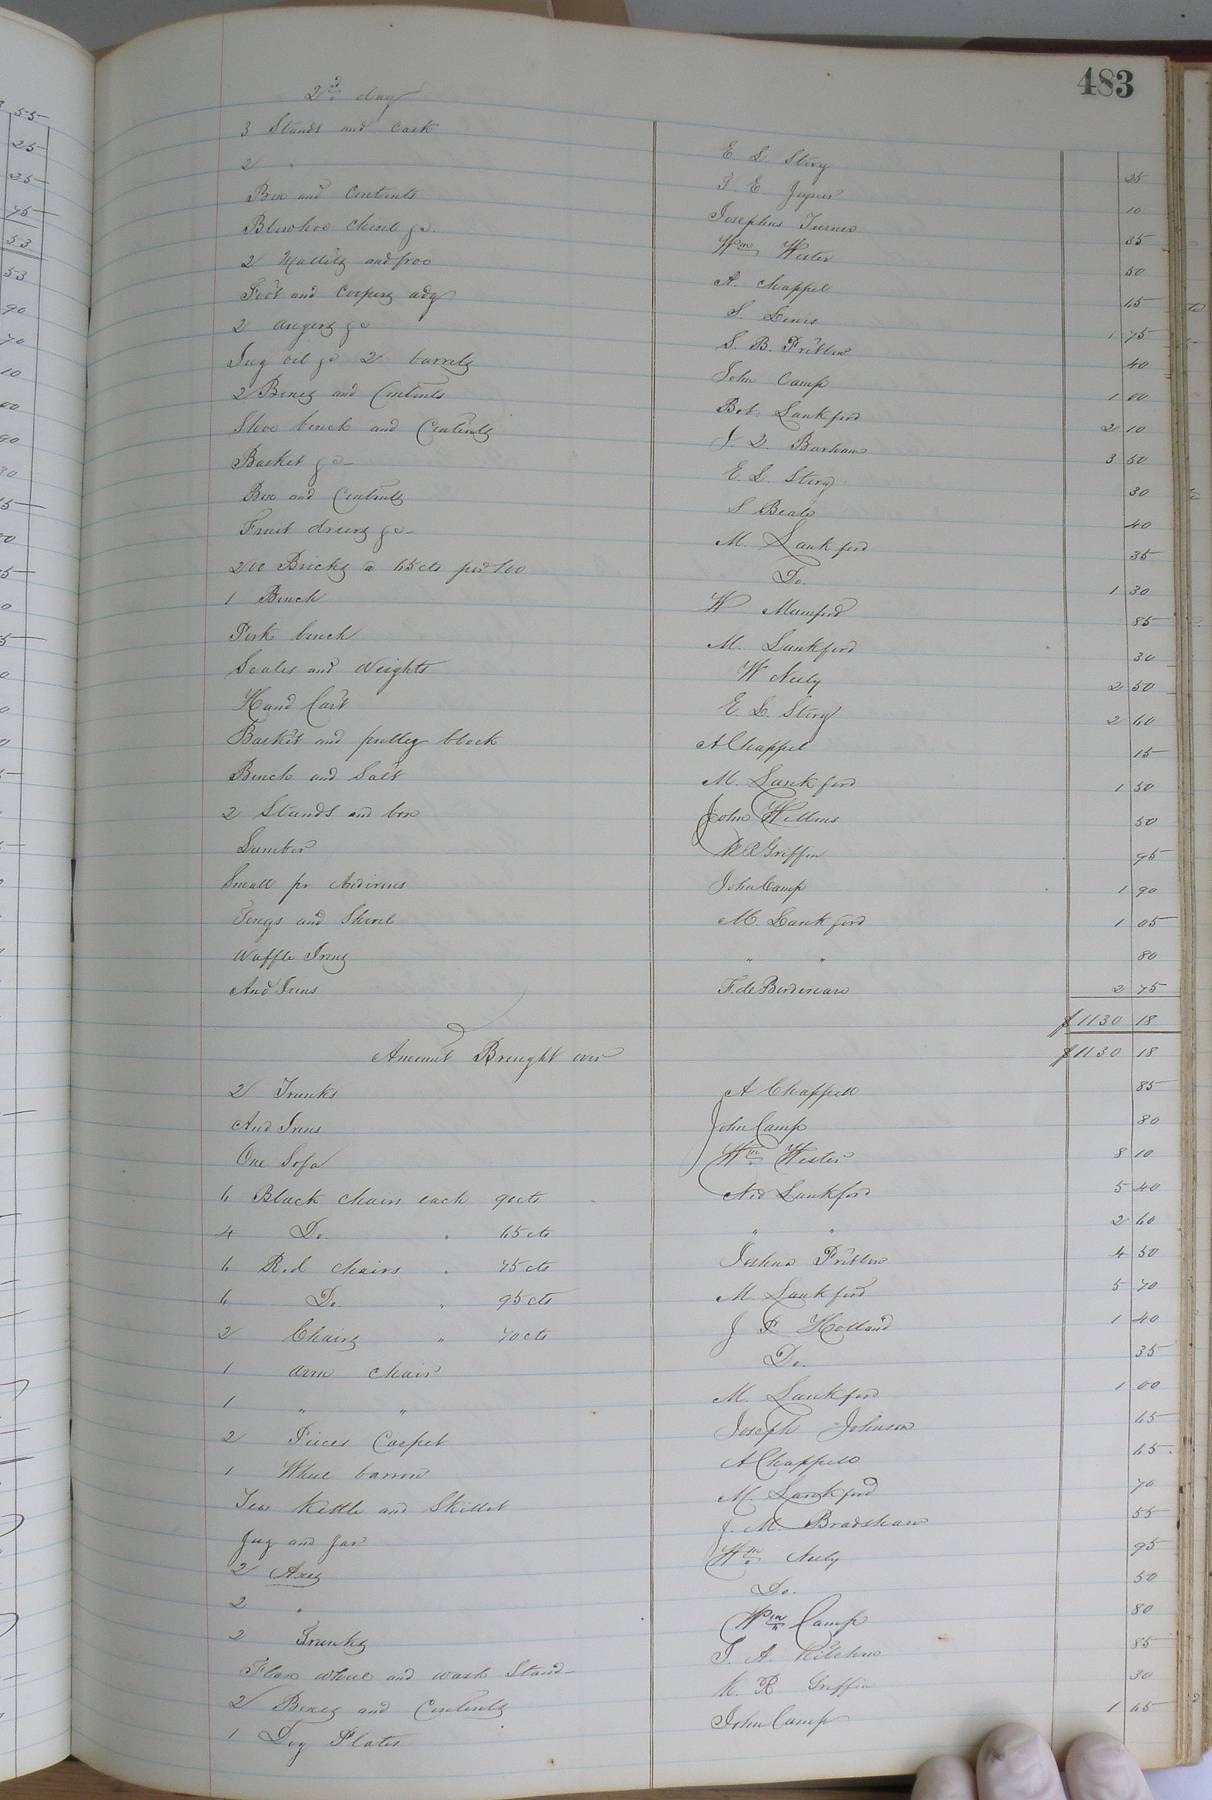 483
2d day
3 Stands and Cask E L Story 25
2 " J E Joyner 10
Box and Contents Josephus Turner 35
Wm Wester 50
2 Mallets and froe A. Chappel 65
Foot and Coopers adz S. Lewis 1 75
2 augers &c S. B. Pretlow 40
Jug oil &c 2 barrels John Camp 1 00
2 Boxes and Contents Bob. Lankford 2 10
Shoe bench and Contents J. D. Barham 3 50
Basket &c E L Story 30
Box and Contents S Beale 40
Fruit driers &c M. Lankford 35
200 Bricks a 65cts per 100 Do. 1 30
1 Bench W Mumford 85
Pork bench M. Lankford 30
Scales and Weights W Neely 2 50
Hand Cart E. L. Story 2 60
Basket and pulley block A Chappel 15
Bench and Salt M. Lankford 1 50
2 Stands and box John Williams 50
Lumber Griffin 95
Small pr Andirons John Camp 1 90
Tongs and Shovel M. Lankford 1 05
Waffle Irons " " 80
And Irons F. de Bordenave 2 75
$1130 18
Amount Brought over $1130 18
2 Trunks A Chappell 85
And Irons John Camp 80
One Sofa Wm Wester 8 10
6 Black chairs each 90cts Ned Lankford 5 40
4 Do. " 65cts " " 2 60
6 Red chairs " 75cts Joshua Pretlow 4 50
6 Do " 95cts M Lankford 5 70
2 Chairs " 70cts J F Holland 1 40
1 arm chair Do. 35
1 " " M. Lankford 1 00
2 Pieces Carpet Joseph Johnson 65
1 Wheel barrow A Chappell 65
Tea Kettle and Skillet M. Lankford 70
Jug and Jar J. M. Bradshaw 55
2 Axes Wm Neely 95
2 " Do. 50
2 Trunks Wm Camp 80
Flax wheel and wash Stand J. A. Kitchen 85
2 Boxes and Contents Griffin 30
1 Doz Plates John Camp 1 65